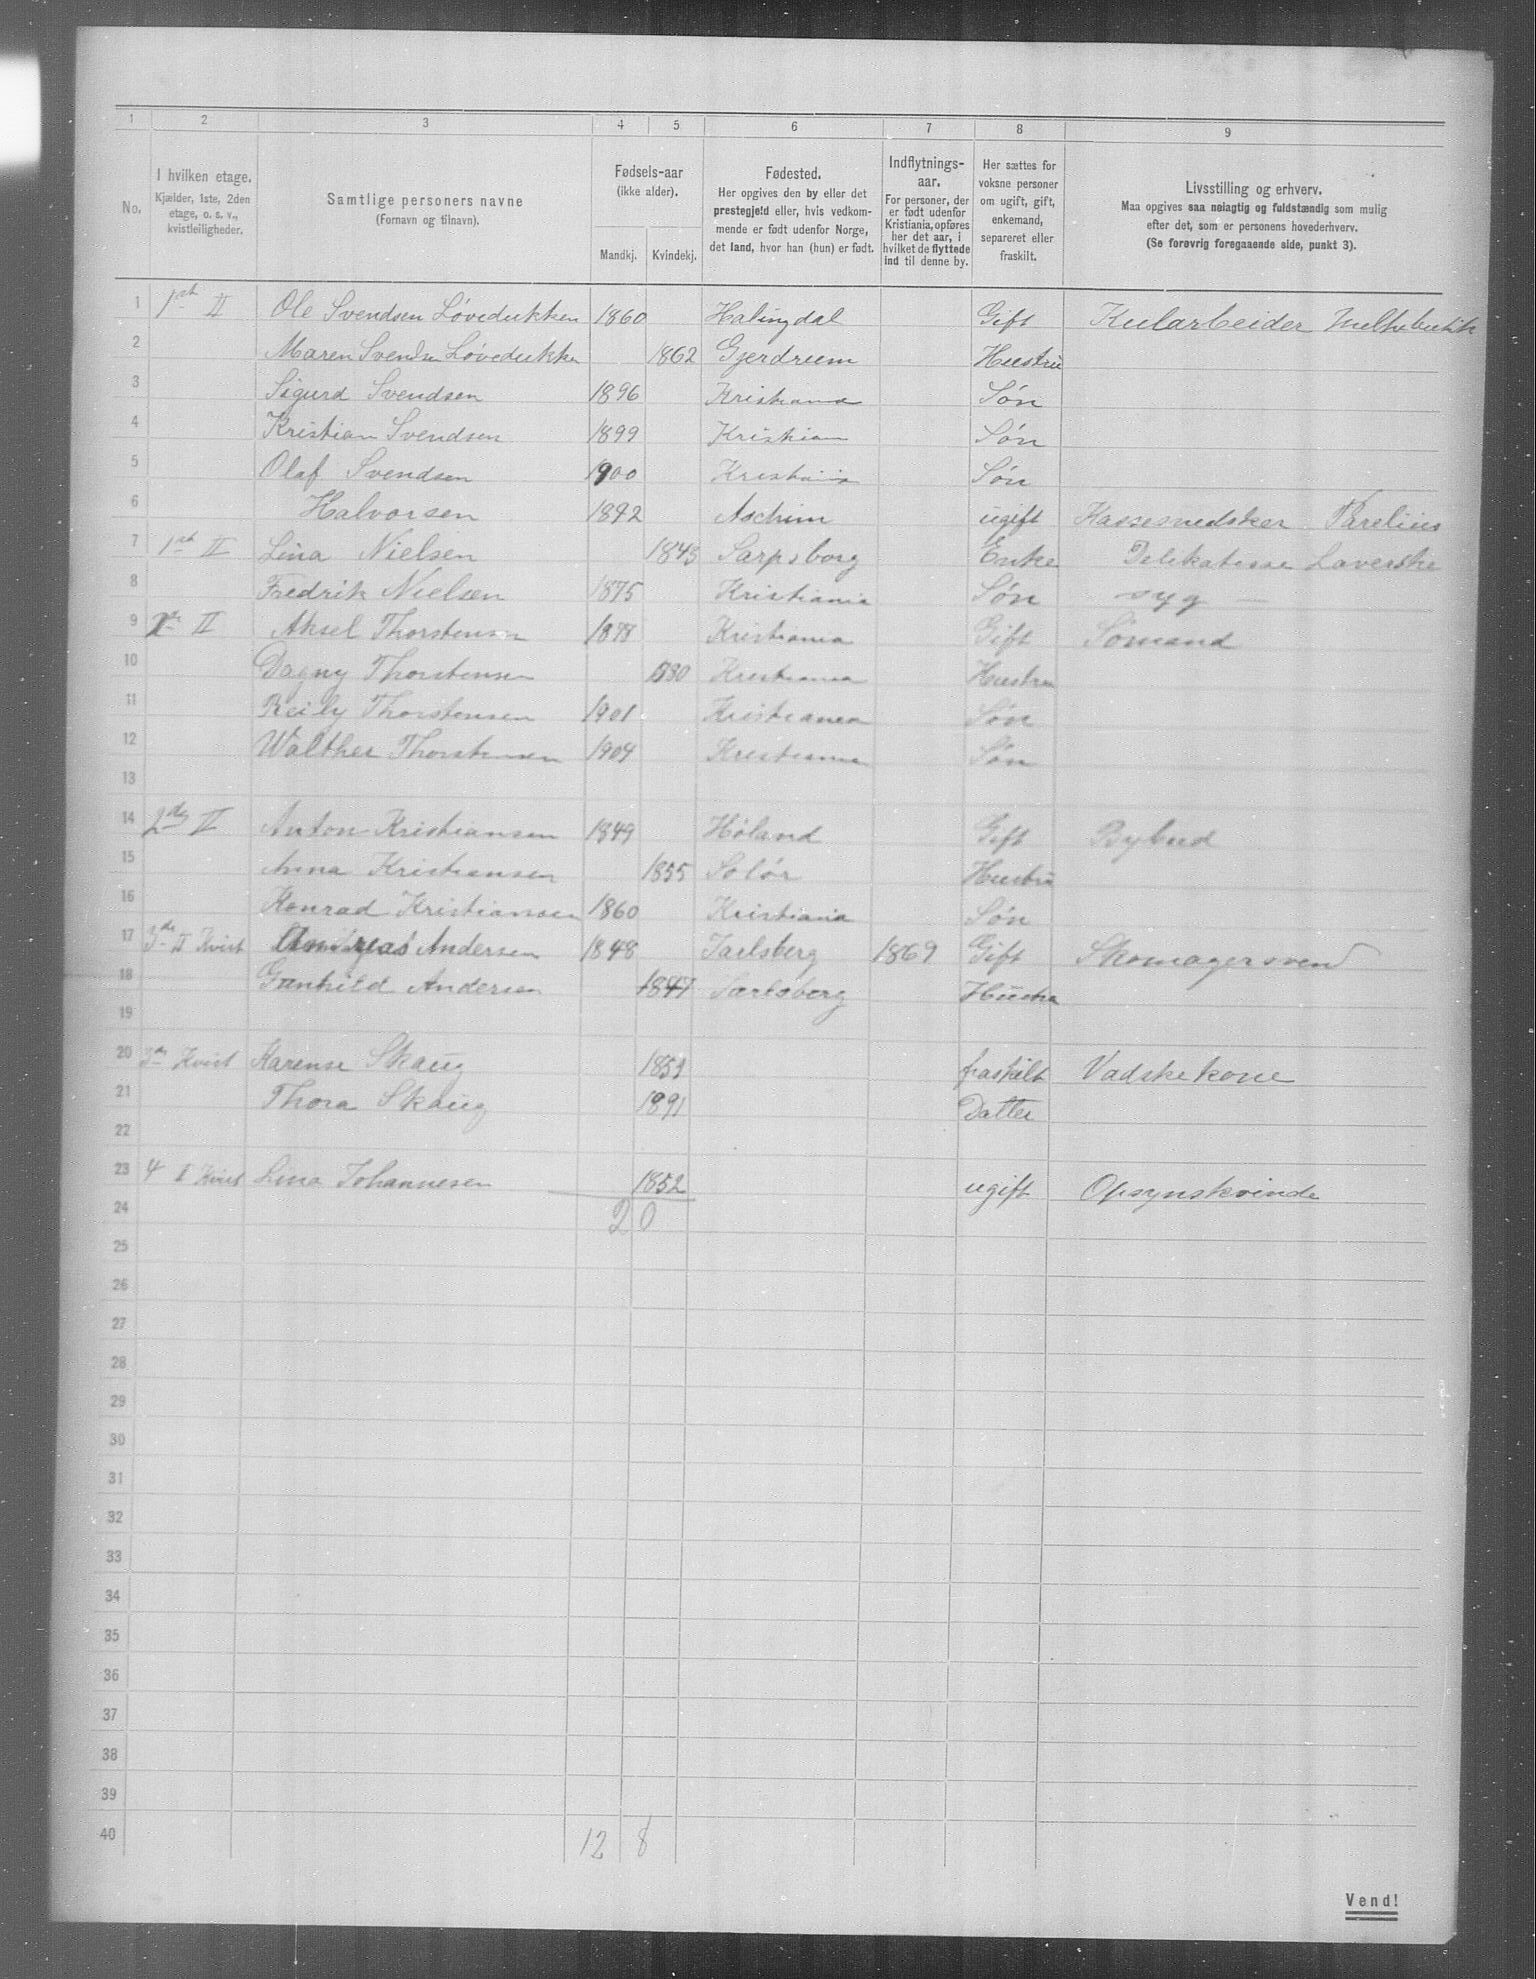 1 2 3 4 5 6 7 8 9
No.
I hvilken etage.
Kjælder, 1ste, 2den
etage, o. s. v.,
kvistleiligheder.
Samtlige personers navne
(Fornavn og tilnavn).
Fødsels-aar
(ikke alder).
Mandkj. Kvindekj.
Fødested.
Her opgives den by eller det
prestegjeld eller, hvis vedkom-
mende er født udenfor Norge,
det land, hvor han (hun) er født.
Indflytnings-
aar.
For personer, der
er født udenfor
Kristiania, opføres
her det aar, i
hvilket de flyttede
ind til denne by.
Her sættes for
voksne personer
om ugift, gift,
enkemand,
separeret eller
fraskilt.
Livsstilling og erhverv.
Maa opgives saa nøiagtig og fuldstændig som mulig
efter det, som er personens hovederhverv.
(Se forøvrig foregaaende side, punkt 3).
1 1st II Ole Svendsen Løvedukken 1860 Halingdal Gift Kularbeider
2 Maren Svendsn Løvedukken 1862 Gjerdrum Hustru
3 Sigurd Svendsen 1896 Kristiania Søn
4 Kristian Svendsen 1899 Kristian Søn
5 Olaf Svendsen 1900 Kristiania Søn
6 Halvorsen 1892 Aschim ugift Parelius
7 1st II Lina Nielsen 1843 Sarpsborg Enke Delikatesse
8 Fredrik Nielsen 1875 Kristiania Søn syg
9 II Aksel Thorstensen 1877 Kristiania Gift Sømand
10 Dagny Thorstensen 1880 Kristiania Hustru
11 Thorstensen 1901 Kristiania Søn
12 Walther Thorstensen 1904 Kristiania Søn
13
14 2den II Anton Kristiansen 1849 Høland Gift Bybud
15 Anna Kristiansen 1855 Solør Hustru
16 Konrad Kristiansen 1860 Kristiania Søn
17 3de II Kvist Andersen 1848 Jarlsberg 1869 Gift Skomagersvend
18 Gunhild Andersen 1847 Jarlsberg Hustru
19
20 3de Kvist Karense Skaug 1851 fraskilt Vadskekone
21 Thora Skaug 1891 Datter
22
23 4 II Kvist Lina Johannesen 1852 ugift Opsynskvinde
24 20
25
26
27
28
29
30
31
32
33
34
35
36
37
38
39
40 12 8
Vend!